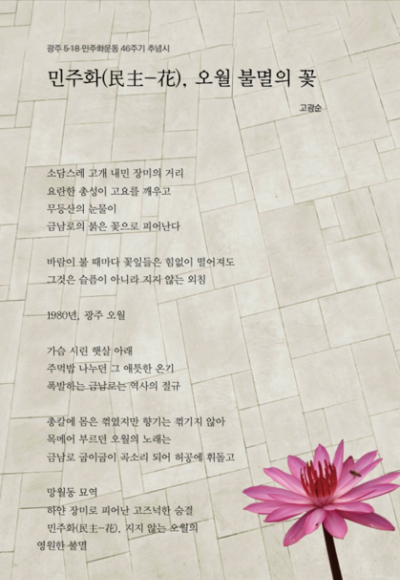 광주 5·18 민주화운동 46주기 추념시
민주화(民主-花), 오월 불멸의 꽃
고광순
소담스레 고개 내민 장미의 거리
요란한 총성이 고요를 깨우고
무등산의 눈물이
금남로의 붉은 꽃으로 피어난다
바람이 불 때마다 꽃잎들은 힘없이 떨어져도
그것은 슬픔이 아니라 지지 않는 외침
1980년, 광주 오월
가슴 시린 햇살 아래
주먹밥 나누던 그 애틋한 온기
폭발하는 금남로는 역사의 절규
총칼에 몸은 꺾였지만 향기는 꺾기지 않아
목메어 부르던 오월의 노래는
금남로 굽이굽이 곡소리 되어 허공에 휘돌고
망월동 묘역
하얀 장미로 피어난 고즈넉한 숨결
민주화(民主-花), 지지 않는 오월의
영원한 불멸